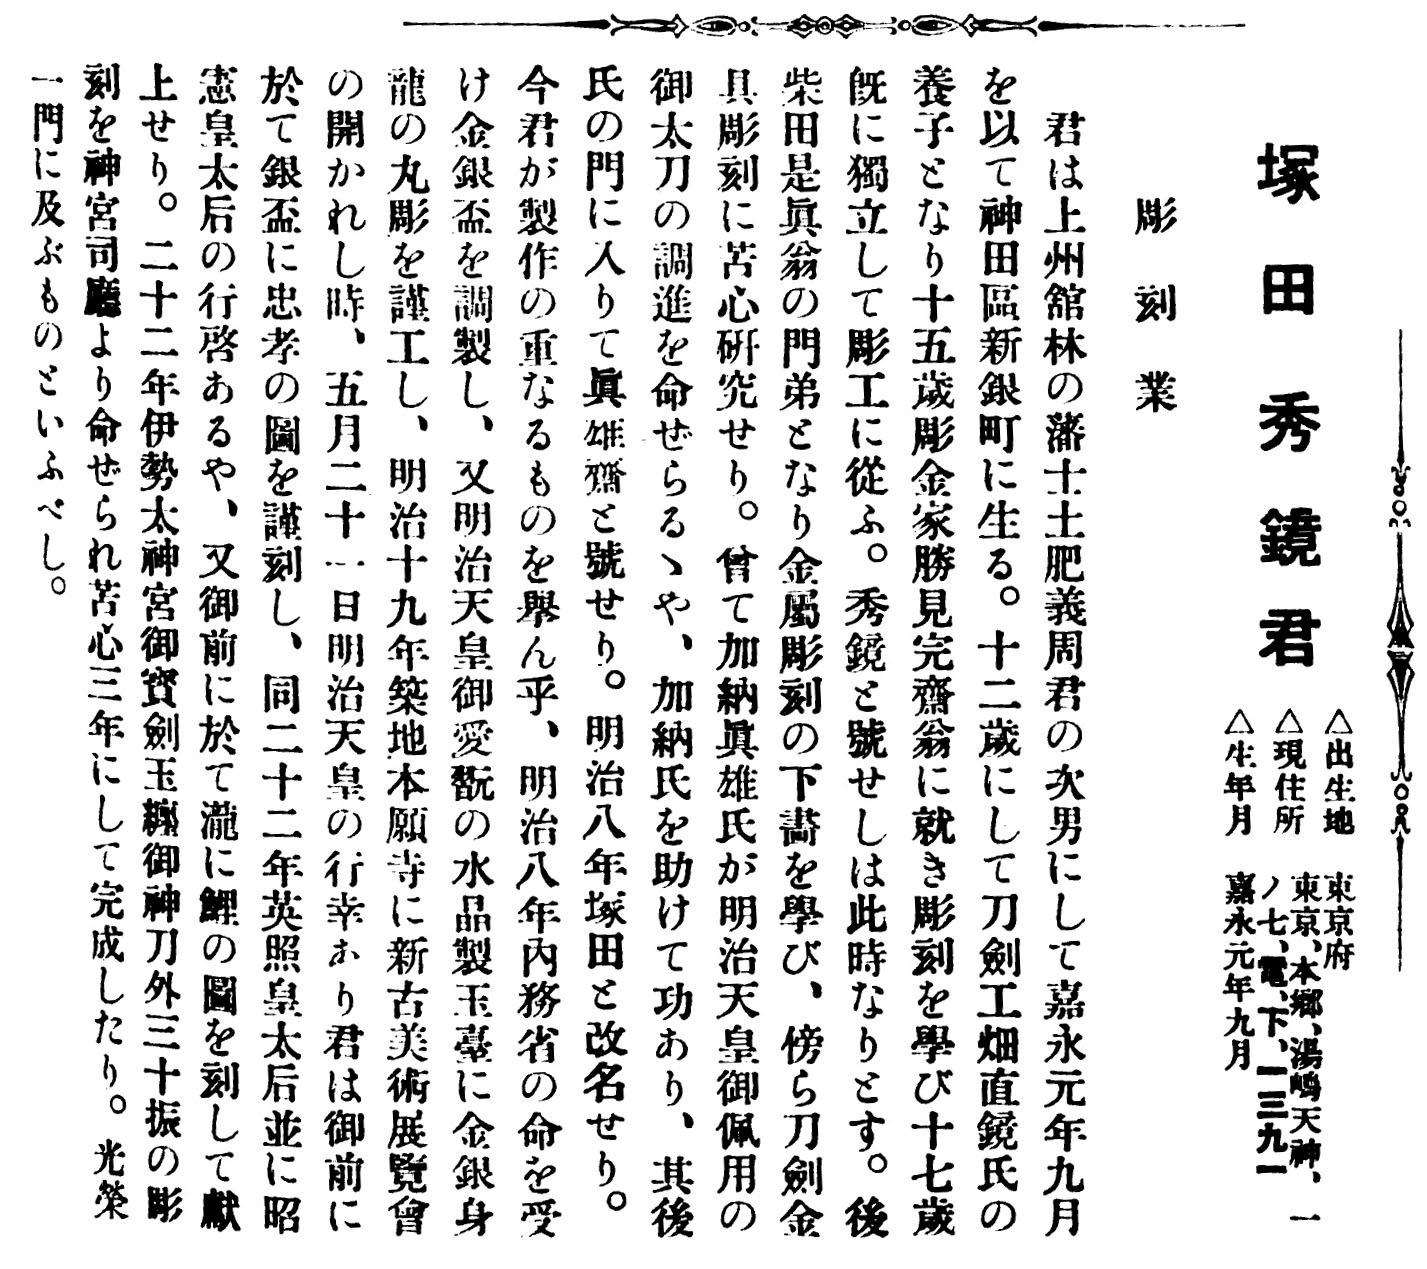 塚田秀鏡君
△出生地 東京府
△現住所 東京、本郷、湯嶋天神、一
ノ七、電、下、一三九一
△生年月 嘉永元年九月
彫刻業
君は上州舘林の藩士土肥義周君の次男にして嘉永元年九月
を以て神田區新銀町に生る。十二歲にして刀劍工畑直鏡氏の
養子となり十五歲彫金家勝見完齋翁に就き彫刻を學び十七歲
旣に獨立して彫工に從ふ。秀鏡と號せしは此時なりとす。後
柴田是眞翁の門弟となり金屬彫刻の下畵を學び、傍ら刀劍金
具彫刻に苦心硏究せり。曾て加納眞雄氏が明治天皇御佩用の
御太刀の調進を命ぜらるゝや、加納氏を助けて功あり、其後
氏の門に入りて眞雄齋と號せり。明治八年塚田と改名せり。
今君が製作の重なるものを擧ん乎、明治八年內務省の命を受
け金銀盃を調製し、又明治天皇御愛翫の水晶製玉臺に金銀身
龍の丸彫を謹工し、明治十九年築地本願寺に新古美術展覽會
の開かれし時、五月二十一日明治天皇の行幸あり君は御前に
於て銀盃に忠孝の圖を謹刻し、同二十二年英照皇太后並に昭
憲皇太后の行啓あるや、又御前に於て瀧に鯉の圖を刻して獻
上せり。二十二年伊勢太神宮御寳劍玉纒御神刀外三十振の彫
刻を神宮司廳より命ぜられ苦心三年にして完成したり。光榮
一門に及ぶものといふべし。